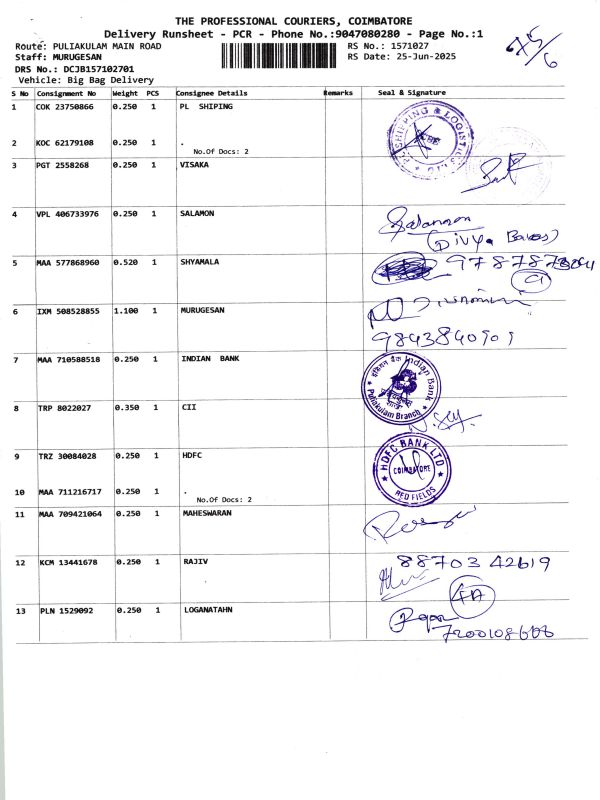 THE PROFESSIONAL COURIERS, COIMBATORE
Delivery Runsheet - PCR - Phone No.:9047080280 - Page No.:1
Route: PULIAKULAM MAIN ROAD RS No.: 1571027
Staff: MURUGESAN RS Date: 25-Jun-2025
DRS No.: DCJB157102701
Vehicle: Big Bag Delivery
S No Consignment No Weight PCS Consignee Details Remarks Seal & Signature
1 COK 23750866 0.250 1 PL SHIPING
2 KOC 62179108 0.250 1 .
No.Of Docs: 2
3 PGT 2558268 0.250 1 VISAKA
4 VPL 406733976 0.250 1 SALAMON
Salamon
5 MAA 577868960 0.520 1 SHYAMALA
6 IXM 508528855 1.100 1 MURUGESAN
9843840909
7 MAA 710588518 0.250 1 INDIAN BANK
इंडियन बैंक Indian Bank
Puliakulam Branch
8 TRP 8022027 0.350 1 CII
9 TRZ 30084028 0.250 1 HDFC
HDFC BANK LTD
COIMBATORE
RED FIELDS
10 MAA 711216717 0.250 1 .
No.Of Docs: 2
11 MAA 709421064 0.250 1 MAHESWARAN
12 KCM 13441678 0.250 1 RAJIV
88703 42619
4A
13 PLN 1529092 0.250 1 LOGANATAHN